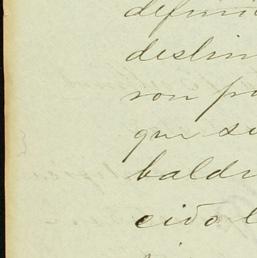 defini
deslin
ron po
que se
baldi
cido l